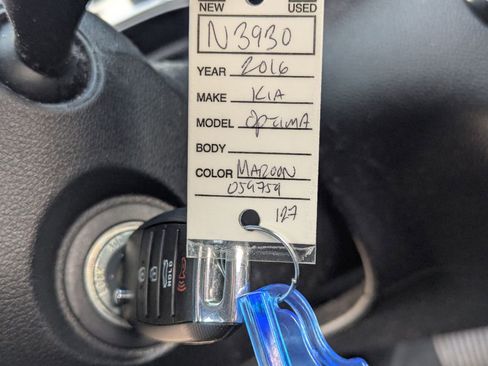 NEW USED
N3930
YEAR 2016
MAKE KIA
MODEL OPTIMA
BODY
COLOR MAROON
059759
127
HOLD